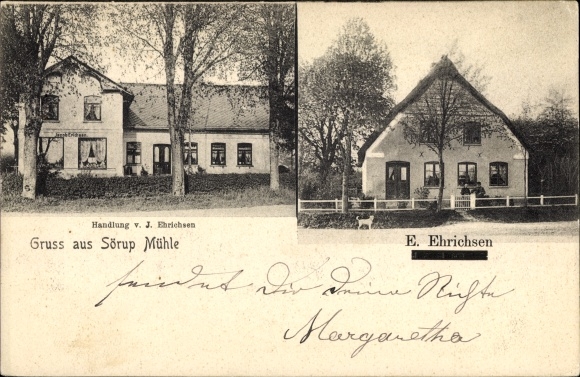 Handlung v. J. Ehrichsen
Gruss aus Sörup Mühle
E. Ehrichsen
sendet Dir Deine Nichte
Margaretha